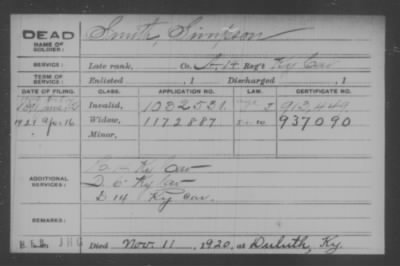 DEAD Smith, Simpson
NAME OF SOLDIER:
SERVICE: Late rank, Co. Reg't Ky Cav
TERM OF SERVICE: Enlisted , 1 Discharged , 1
DATE OF FILING. CLASS. APPLICATION NO. LAW. CERTIFICATE NO.
Invalid, 1032531 J 913,449
1921 Apr. 16 Widow, 1172887 937090
Minor,
ADDITIONAL SERVICES: Ky Cav
D 6 Ky Cav
D 14 Ky Cav.
REMARKS:
Died Nov. 11, 1920, at Duluth, Ky.